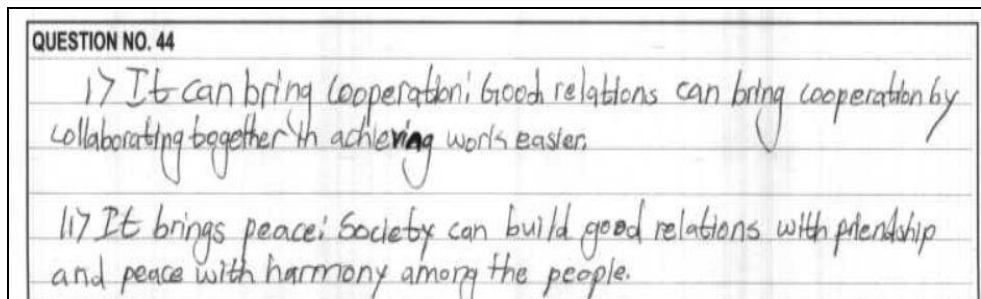 QUESTION NO. 44
i) It can bring cooperation: Good relations can bring cooperation by
collaborating together in achieving work easier.
ii) It brings peace: Society can build good relations with friendship
and peace with harmony among the people.